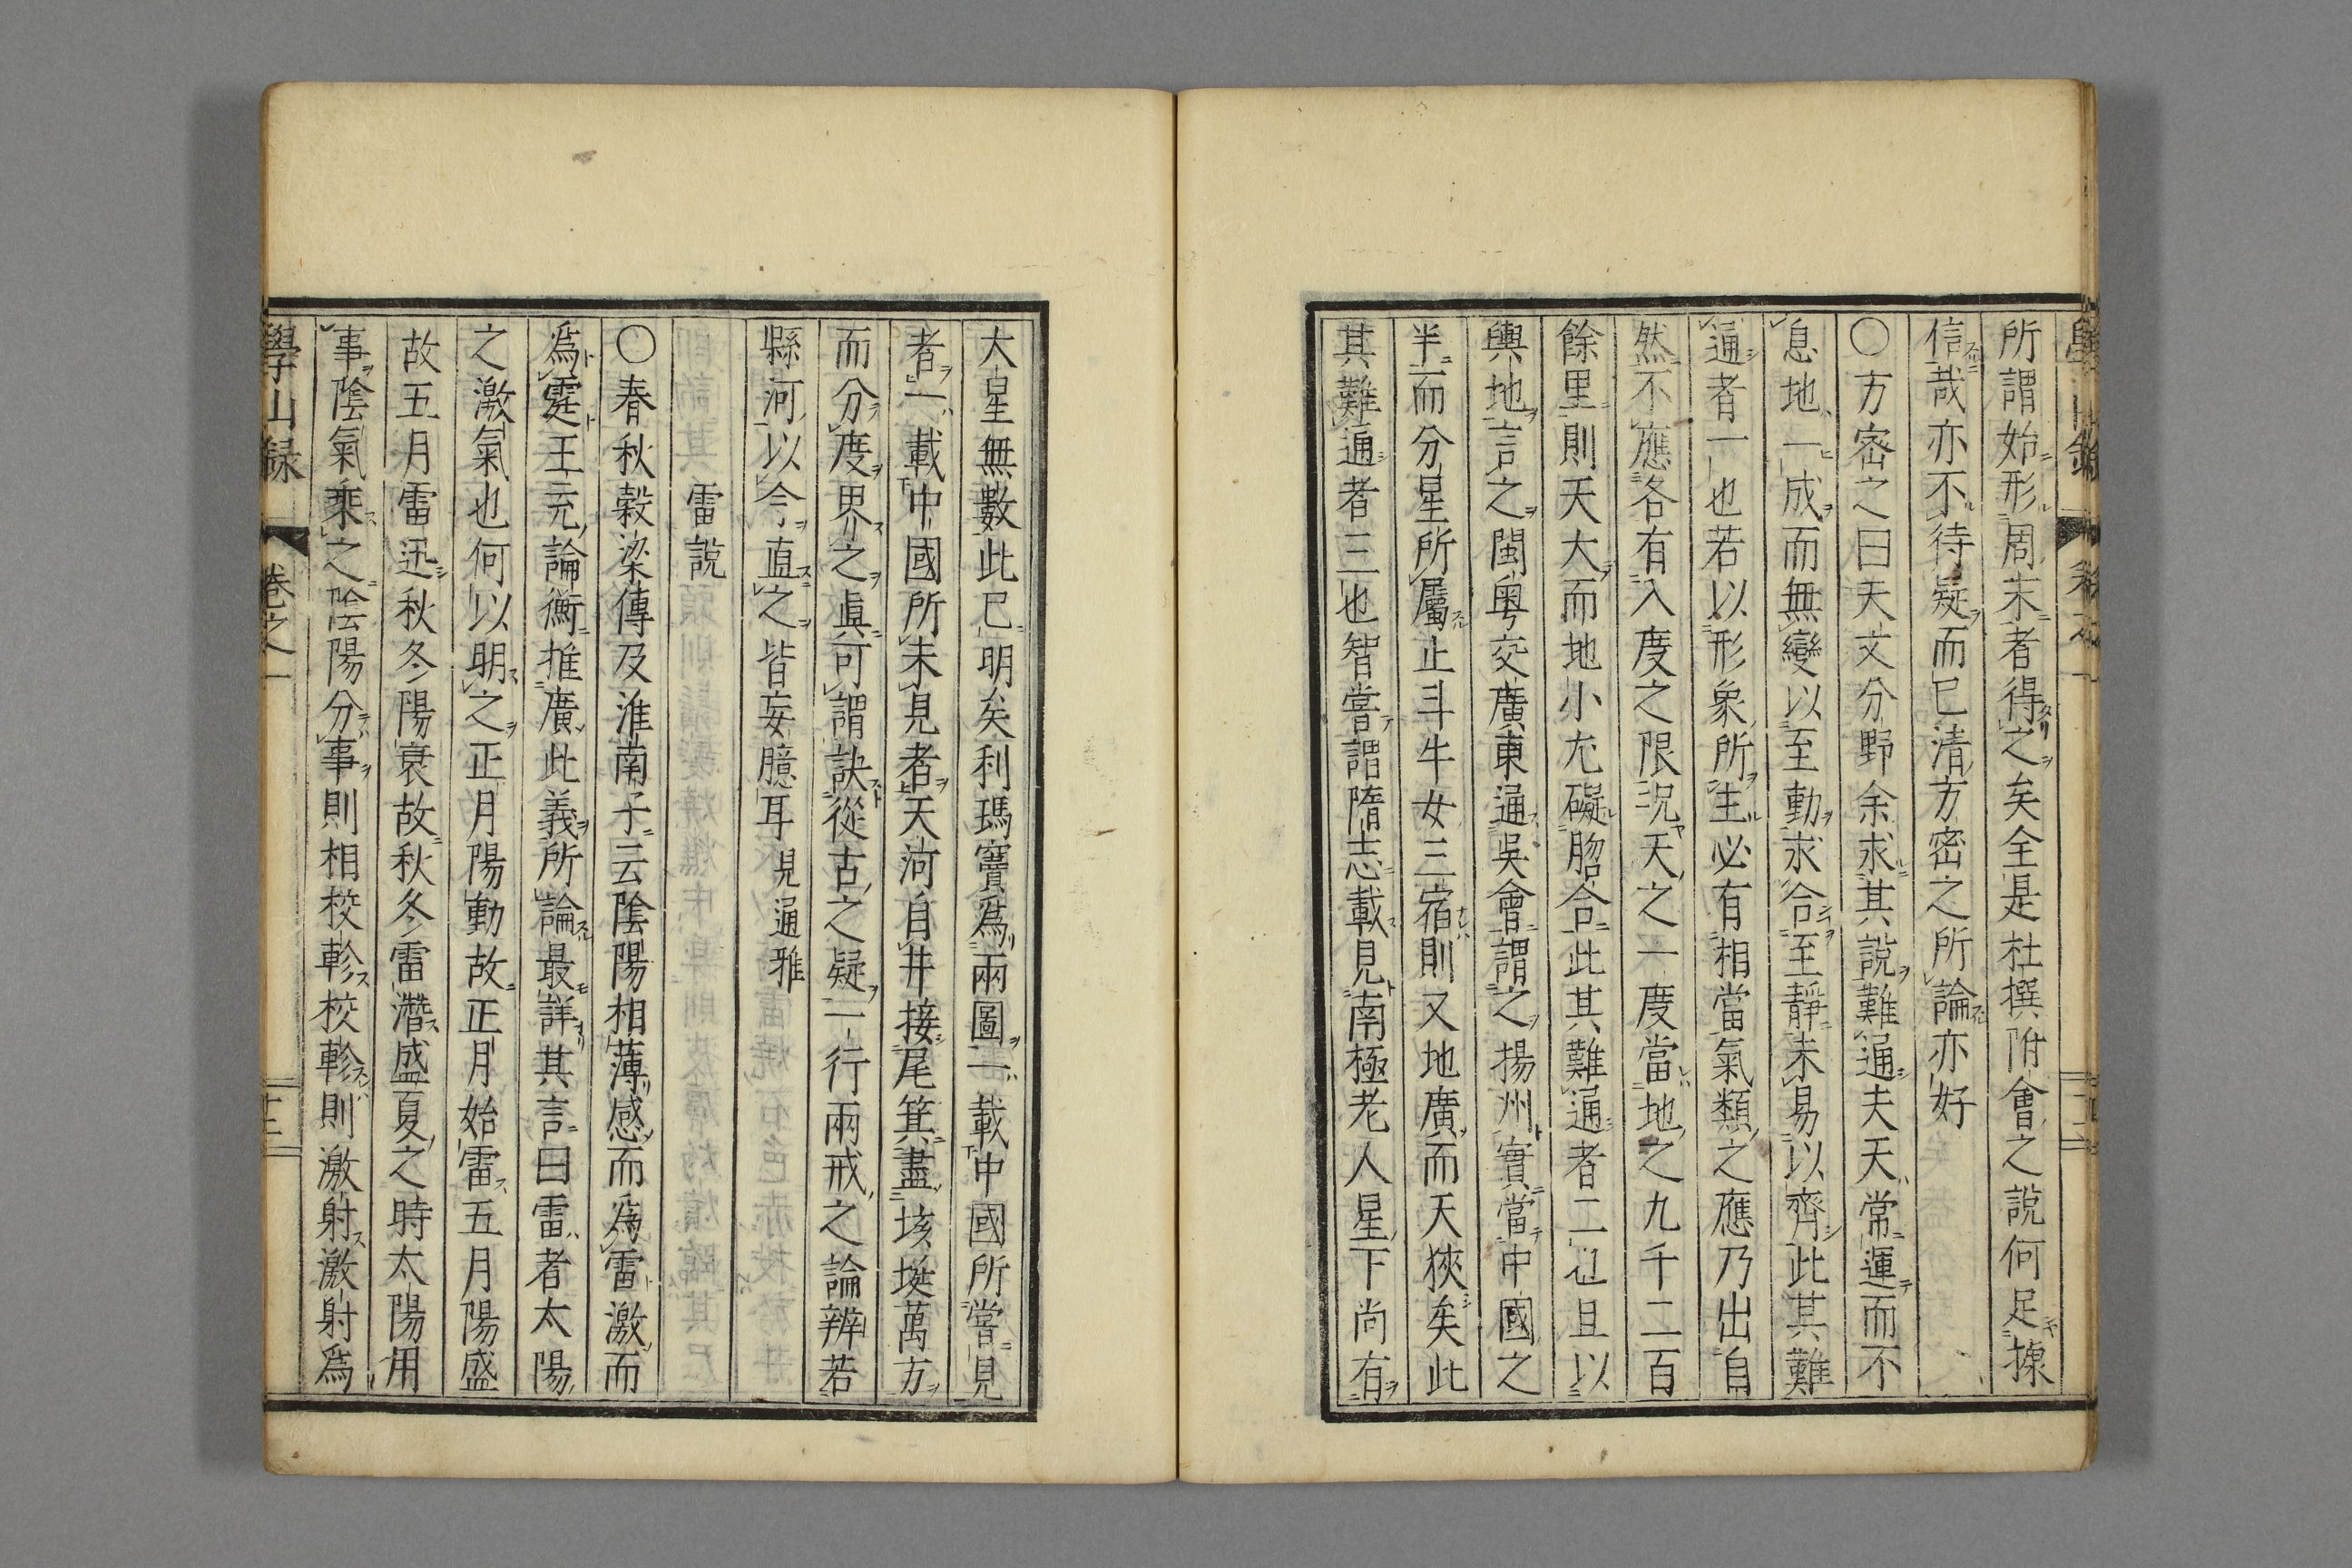 所謂始形周末者得之矣全是杜撰附會之說何足㨿
信哉亦不待疑而已清方密之所論亦好
○方密之曰天文分野余求其說難通夫天常運而不
息地一成而無變以至動求合至靜未易以齊此其難
通者一也若以形象所主必有相當氣類之應乃出自
然不應各有入度之限况天之一度當地之九千二百
餘里則天大而地小尢礙脗合此其難通者二也且以
輿地言之閩粤交廣東通吳會謂之揚州實當中國之
半而分星所屬止斗牛女三宿則又地廣而天狹矣此
其難通者三也智嘗謂隋志載見南極老人星下尚有
大星無數此已明矣利瑪竇爲兩圖一載中國所嘗見
者一載中國所未見者天河自井接尾箕盡垓埏萬方
而分度界之眞可謂訣從古之疑一行兩戒之論辨若
縣河以今直之皆妄臆耳 見通雅
雷說
○春秋穀梁傳及淮南子云陰陽相薄感而爲雷激而
爲霆王充論衡推廣此義所論最詳其言曰雷者太陽
之激氣也何以明之正月陽動故正月始雷五月陽盛
故五月雷迅秋冬陽衰故秋冬雷潛盛夏之時太陽用
事陰氣乘之陰陽分事則相校軫校軫則激射激射爲
學山錄 卷之一 十三